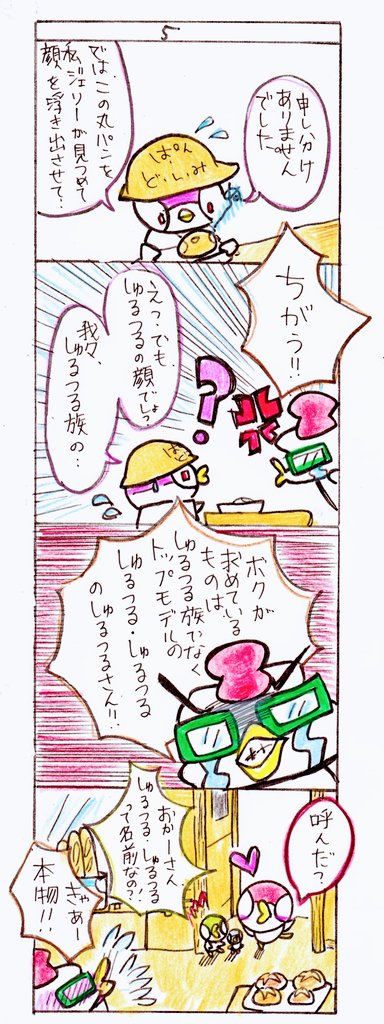 5
申し分け
ありません
でした。
では、この丸パンを
私ジェリーが見つめて
顔を浮き出させて…
ぱん
どぃしみ
ちがう!!
えっ、でも、
しゅるつるの顔でしょっ
我々、
しゅるつる族の…
?
ボクが
求めている
ものは、
しゅるつる族でなく
トップモデルの
しゅるつる・しゅるつる
のしゅるつるさん!!
呼んだ?
おかーさん
しゅるつる・しゅるつる
って名前なの?!
きゃあー
本物!!